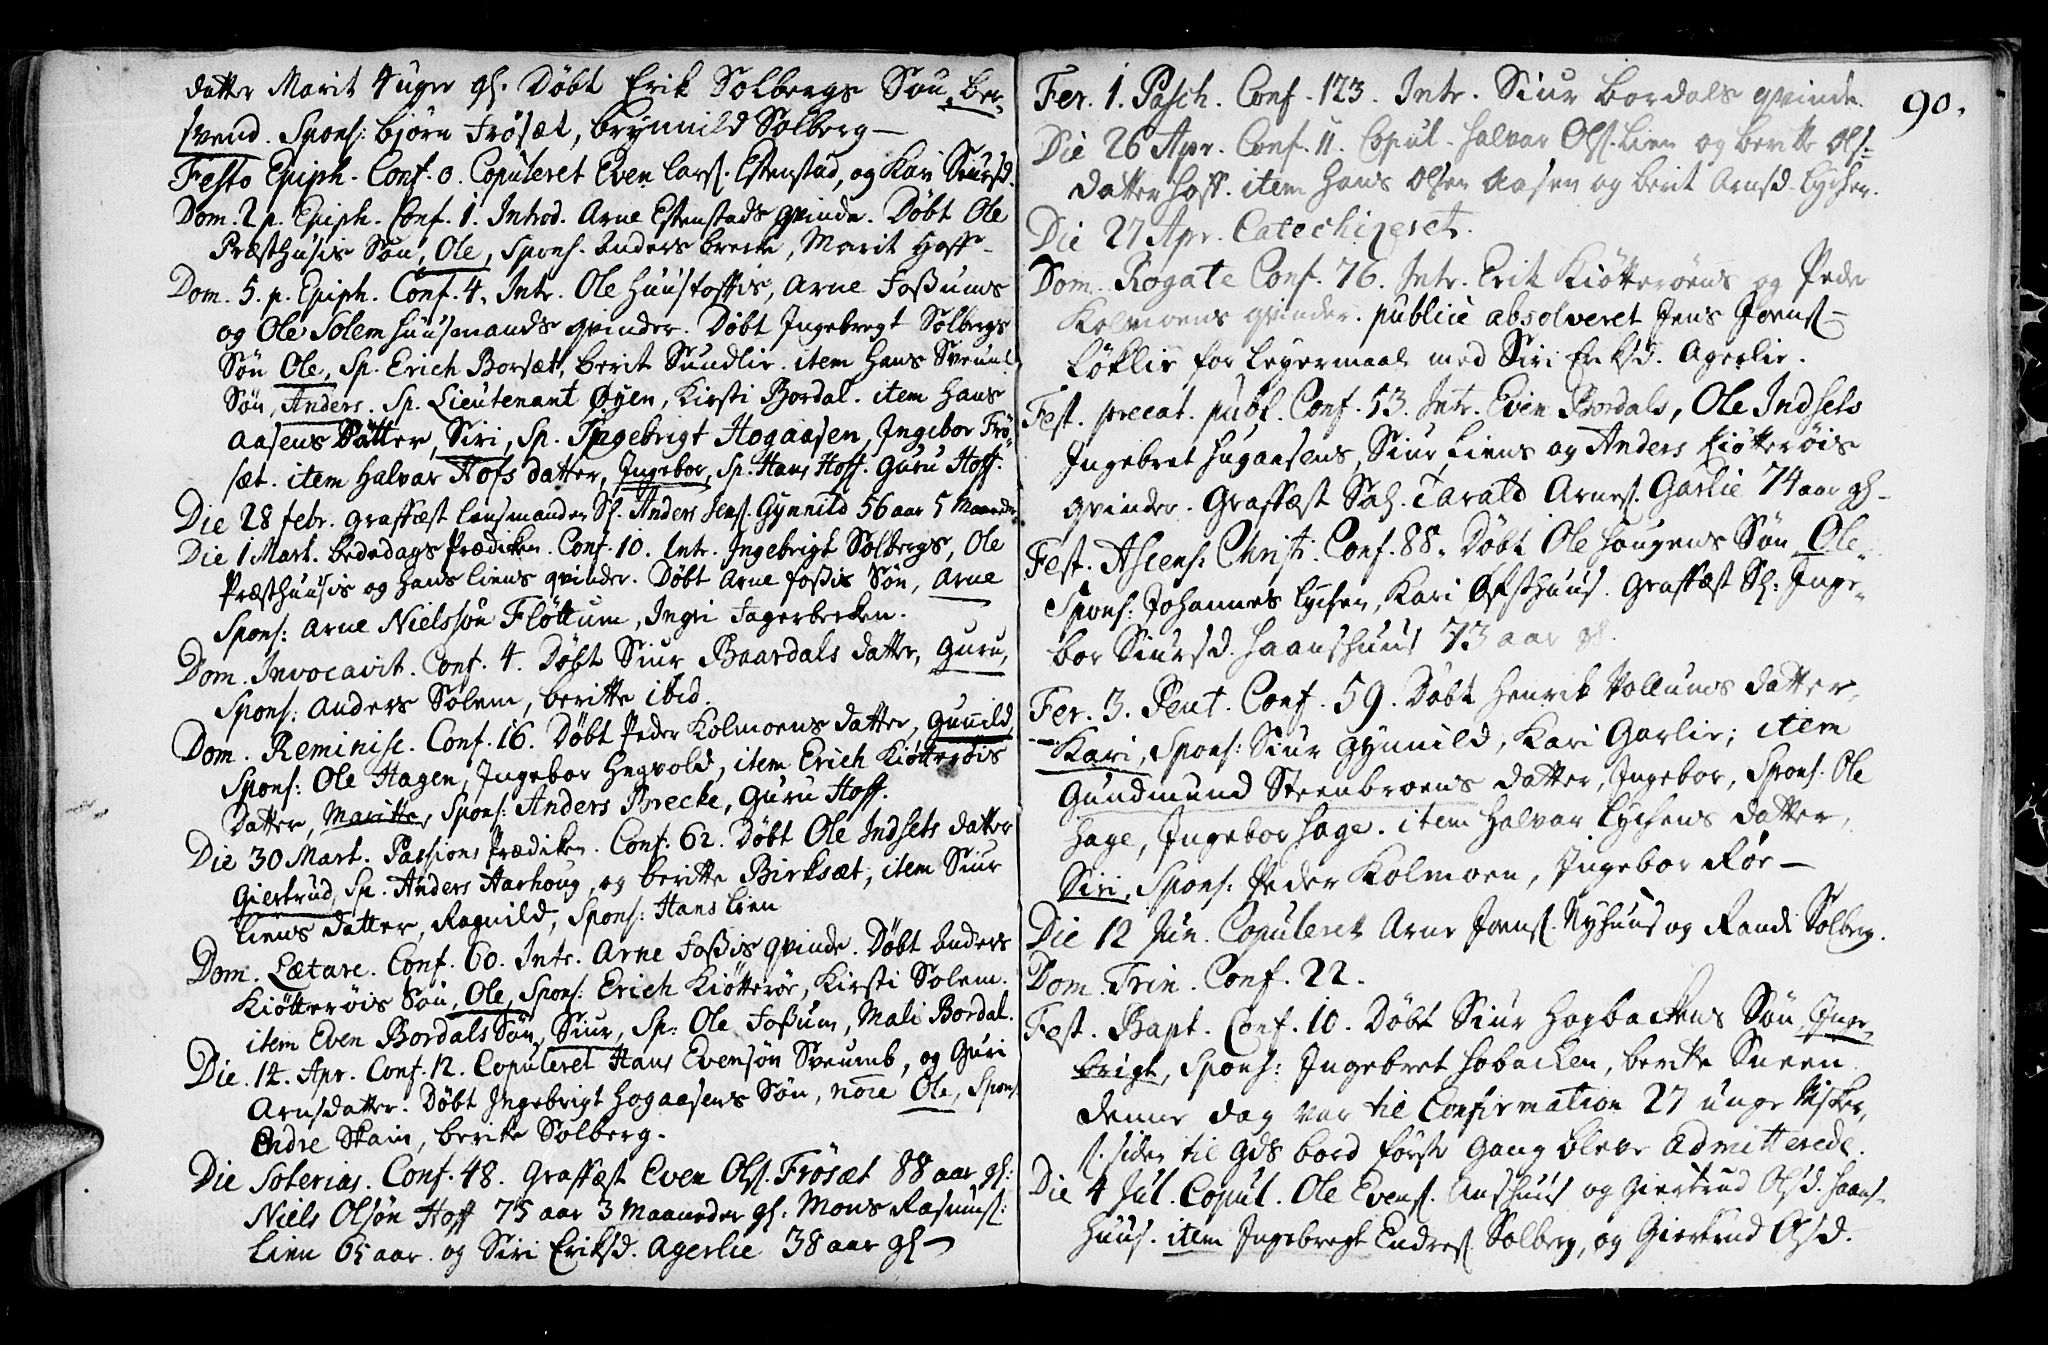 datter Marit 4 uger gl. Døbt Erik Solbergs Søn, Ber-
svend. Spons: Bjørn Frösæt, Brynnild Solberg—
Festo Epiph. Conf. 0. Copuleret Even Lars. Estenstad, og Kari Siursd.
Dom. 2 p. Epiph. Conf. 1. Introd. Arne Estenstads qvinde. Døbt Ole
Præsthusis Søn, Ole, Spons. Anders Brecke, Marit Hoff—
Dom. 5. p. Epiph. Conf. 4. Intr. Ole Huustoftis, Arne Foßums
og Ole Solem huusmands qvinder. Døbt Ingebregt Solbergs
Søn Ole, Sp. Erich Borsæt, Berit Sundlie. item Hans Sveum
Søn, Anders. Sp. Lieutenant Øyen, Kirsti Bordal. item Hans
Aasens Datter, Siri, Sp. Ingebrigt Hogaasen, Ingebor Frö-
sæt. item Halvar Hofs datter, Ingebor, Sp. Hans Hoff. Guru Hoff.
Die 28 febr. Graffæst Lensmanden Sl. Anders Jens. Gynnild 56 aar 5 Maaneder
Die 1 Mart. Bededags Prædiken. Conf. 10. Intr. Ingebrigt Solbergs, Ole
Præsthuusis og Hans Liens qvinder. Døbt Arne Foßis Søn, Arne
Spons: Arne Nielssøn Fløttum, Ingri Fagerbecken.
Dom. Invocavit. Conf. 4. Døbt Siur Baardals datter, Guru,
Spons: Anders Solem, Beritte ibid.
Dom. Reminisc. Conf. 16. Døbt Peder Kolmoens datter, Gunild
Spons: Ole Hagen, Ingebor Hegvold, item Erich Kiötterøis
Datter, Maritte, Spons: Anders Brecke, Guru Hoff.
Die 30 Mart. Passions Prædiken. Conf. 62. Døbt Ole Indsets datter
Giertrud, Sp. Anders Aarhoug, og Beritte Birksæt, item Siur
Liens datter, Ragnild, Spons: Hans Lien
Dom. Lætare. Conf. 60. Intr. Arne Foßis qvinde. Døbt Anders
Kiötterøis Søn, Ole, Spons: Erich Kiötterøe, Kirsti Solem.
item Even Bordals Søn, Siur, Sp: Ole Foßum, Mali Bordal.
Die. 14. Apr. Conf. 12. Copuleret Hans Evensøn Sveumb, og Guri
Arnsdatter. Døbt Ingebrigt Hogaasens Søn, noīe Ole, Spons
Endre Skain, Berite Solberg.
Die Soterias. Conf. 48. Graffæst Even Ols. Frösæt 88 aar gl:
Niels Olsøn Hoff 75 aar 3 Maaneder gl. Mons Rasmus:
Lien 65 aar. og Siri Eriksd. Agerlie 38 aar gl—
90.
Fer. 1. Pasch. Conf. 123. Intr. Siur Bordals qvinde.
Die 26 Apr. Conf. 11. Copul. Halvar Ols. Lien og Beritte Ols=
datter Hoff. item Hans Olsen Aasen og Berit Arnsd. Lychen.
Die 27 Apr. Catechizeret.
Dom. Rogate Conf. 76. Intr. Erik Kiötterøens og Peder
Kolmoens qvinder. publicè absolveret Jens Joens—
Løklie for Leyermaal med Siri Eriksd. Agerlie.
Fest. precat. publ. Conf. 53. Intr. Even Bordals, Ole Indsets
Ingebret Hugaasens, Siur Liens og Anders Kiötterøis
qvinder. Graffæst Sal. Tarald Arnes. Garlie 74 aar gl—
Fest. Ascens: Christi. Conf. 88. Døbt Ole Haugens Søn Ole.
Spons: Johannes Lychen, Kari Østhuus. Graffæst Sl: Inge-
bor Siursd. Haanshuus 73 aar gl.
Fer. 3. Pent. Conf. 59. Døbt Henrik Vollums datter,
Kari, Spons: Siur Gynnild, Kari Garlie; item
Gundmund Steenbroens datter, Ingebor, Spons. Ole
Hage, Ingebor Hage. item Halvar Lychens datter,
Siri, Spons: Peder Kolmoen, Ingebor Röe—
Die 12 Jun. Copuleret Arne Joens. Nyhuus og Randi Solberg.
Dom. Trin. Conf. 22.
Fest. Bapt. Conf. 10. Døbt Siur Hogbackens Søn, Inge-
brigt, Spons: Ingebret Hobacken, Beritte Sneen.
denne dag var til Confirmation 27 unge Nisker,
s. siden til Gds bord første Gang bleve admitterede.
Die 4 Jul. Copul. Ole Evens. Aushuus og Giertrud Olsd. Haans-
huus. item Ingebregt Endres. Solberg, og Giertrud Olsd.